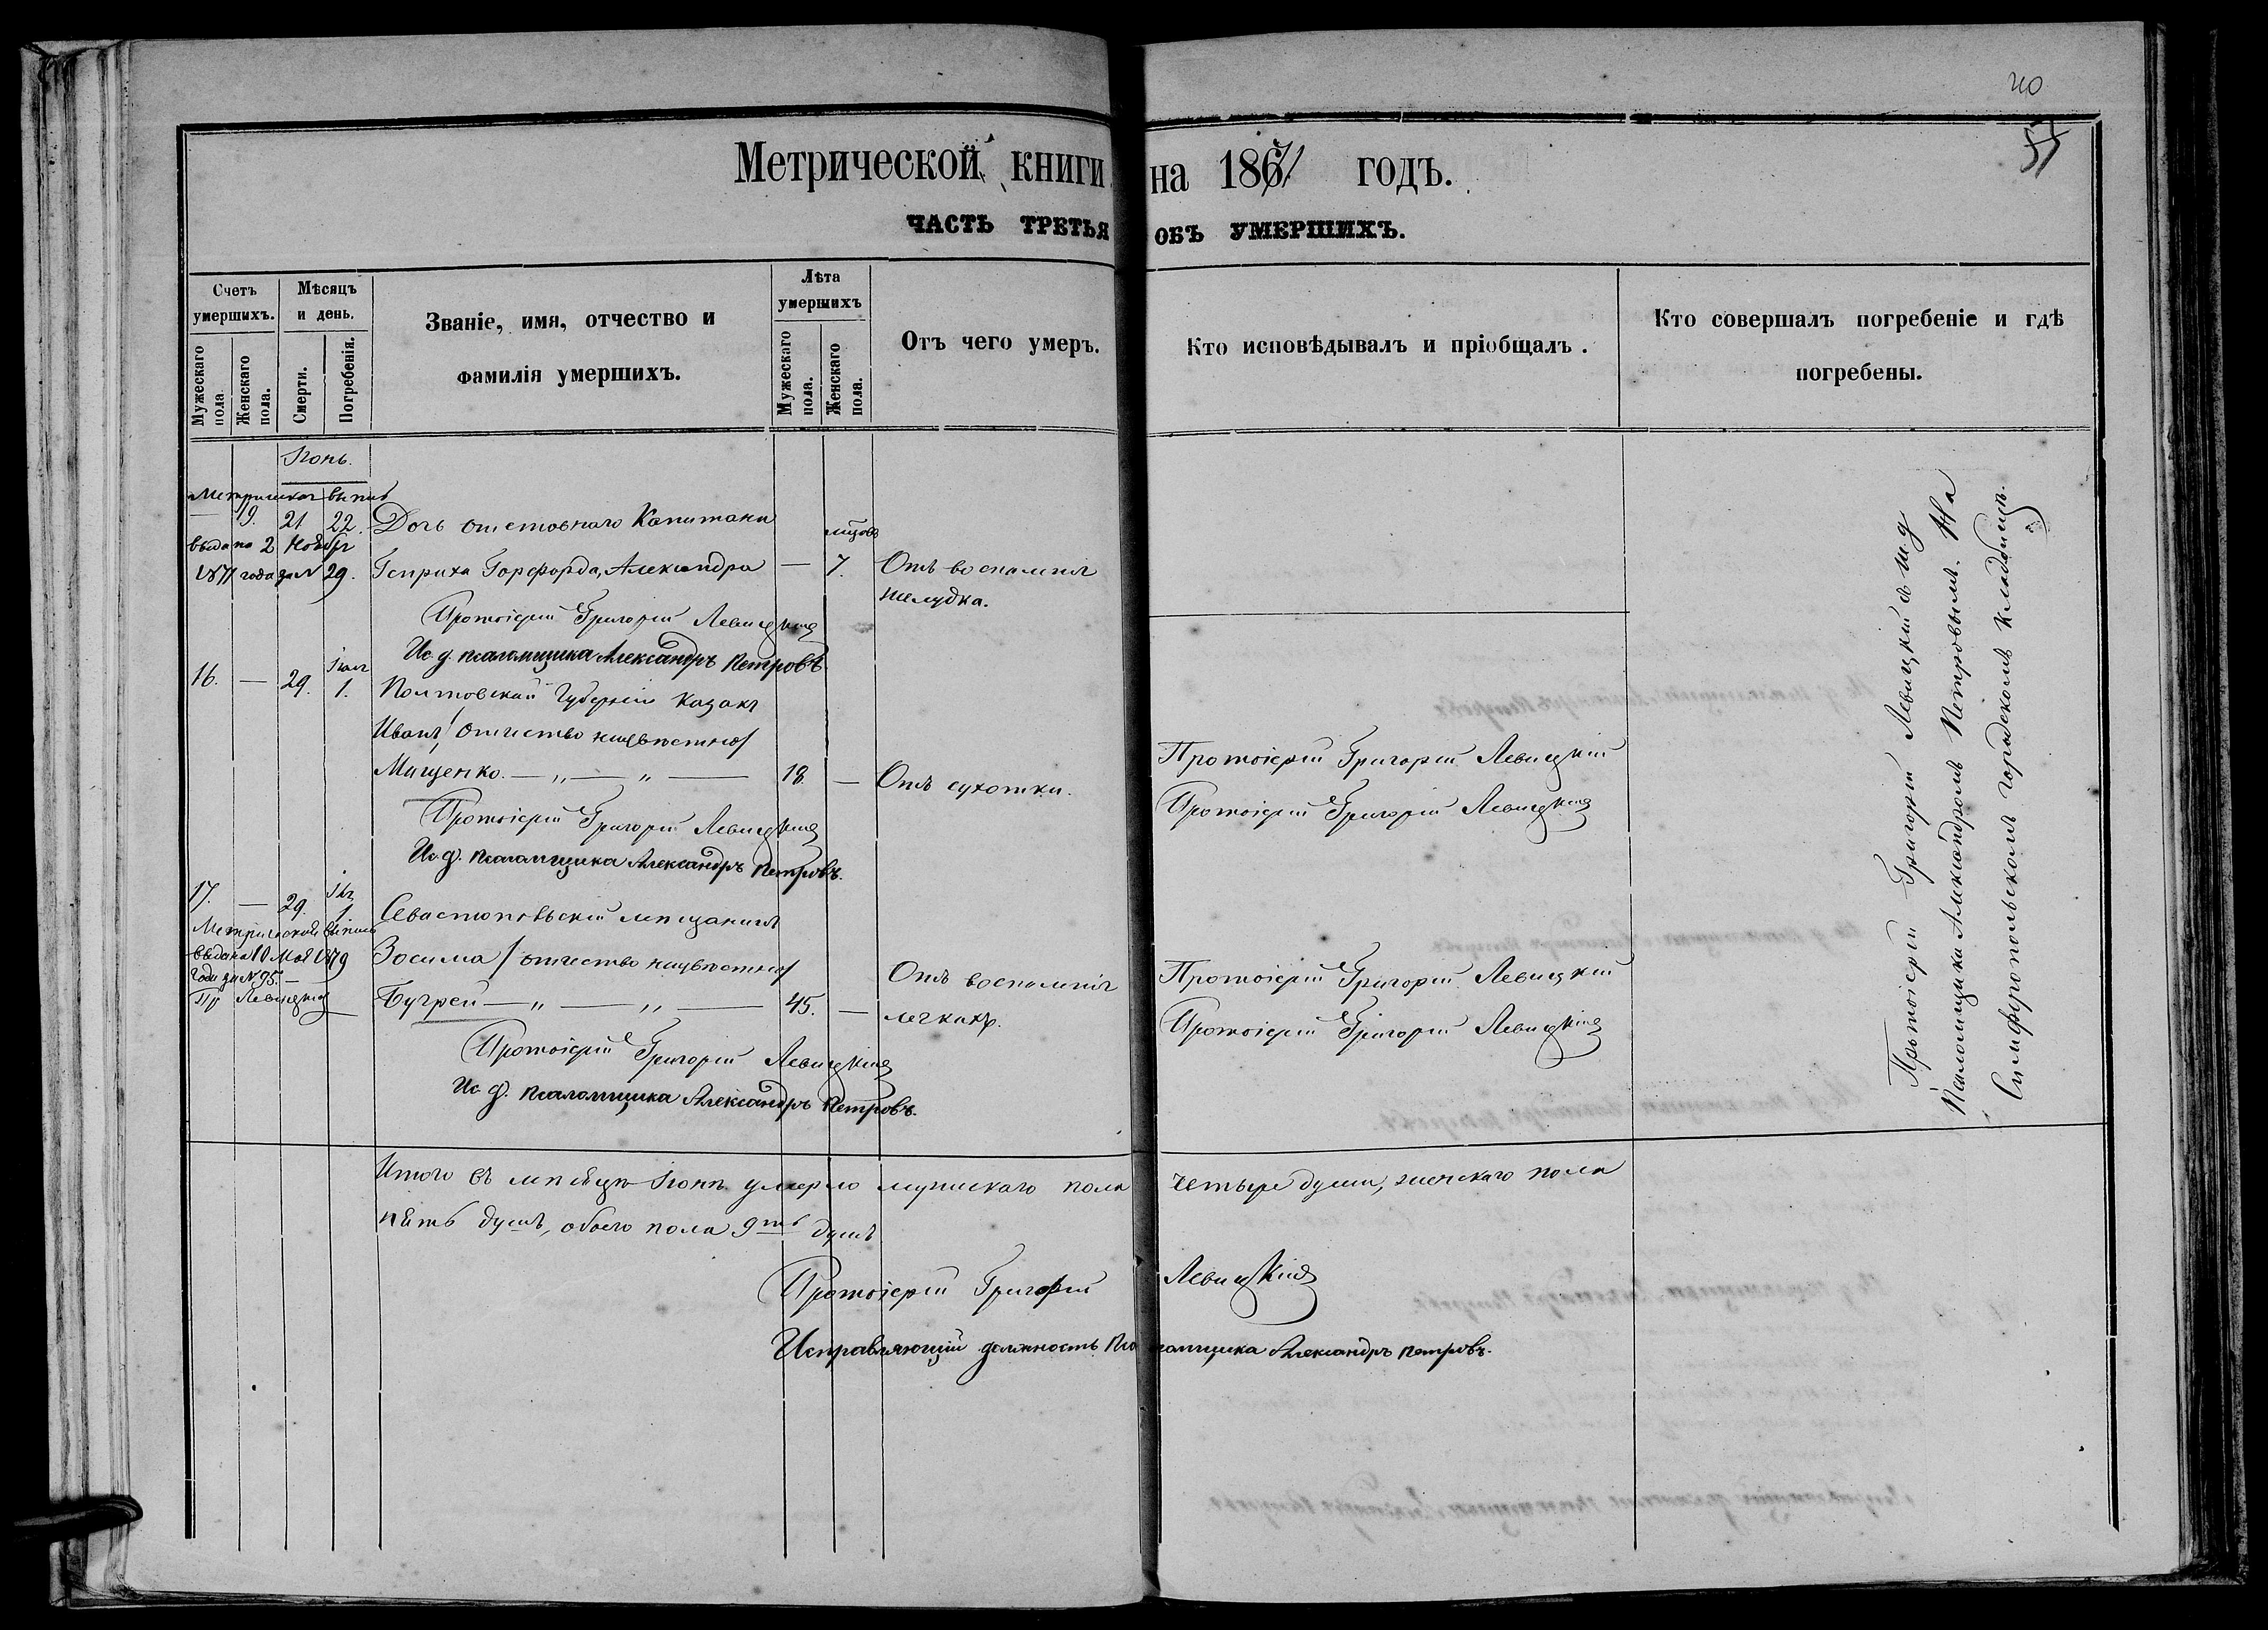 40
57
Метрической книги на 1871 годъ.
ЧАСТЬ ТРЕТЬЯ ОБЪ УМЕРШИХЪ.
Счетъ умершихъ.
Мѣсяцъ и день.
Званіе, имя, отчество и фамилія умершихъ.
Лѣта умершихъ
Отъ чего умеръ.
Кто исповѣдывалъ и пріобщалъ.
Кто совершалъ погребеніе и гдѣ погребены.
Мужескаго пола.
Женскаго пола.
Смерти.
Погребенія.
Мужескаго пола.
Женскаго пола.
Іюнь.
— 19. 21 22. Дочь отставнаго Капитана мѣсяц.
выдана 2 Ноября
1871 года за № 29. Генриха Горфорда, Александра — 7. Отъ воспаленія
желудка.
Протоіерей Григорій Левицкій
Ис. д. псаломщика Александръ Петровъ.
16. — 29. Іюля 1. Полтавской Губерніи казакъ
Иванъ /отчество неизвѣстно/
Мищенко. — „ — „ — 18. — Отъ сухотки. Протоіерей Григорій Левицкій
Протоіерей Григорій Левицкій Протоіерей Григорій Левицкій
Ис. д. псаломщика Александръ Петровъ.
17. — 29. Іюля 1. Севастопольскій мѣщанинъ
выдана 10 Мая 1879
года за № 95. —
Зосима /отчество неизвѣстно/ Отъ воспаленія Протоіерей Григорій Левицкій
Пр Левицкій
Бугрей — „ — „ — 45. — легкихъ. Протоіерей Григорій Левицкій
Протоіерей Григорій Левицкій
Ис. д. псаломщика Александръ Петровъ.
Протоіерей Григорій Левицкій съ и. д
Псаломщика Александромъ Петровымъ. На
Симферопольскомъ городскомъ кладбищѣ.
Итого въ мѣсяцѣ Іюнѣ умерло мужскаго пола четыре души, женскаго пола
пять душъ, обоего пола 9ть душъ
Протоіерей Григорій Левицкій
Исправляющій должность Псаломщика Александръ Петровъ.